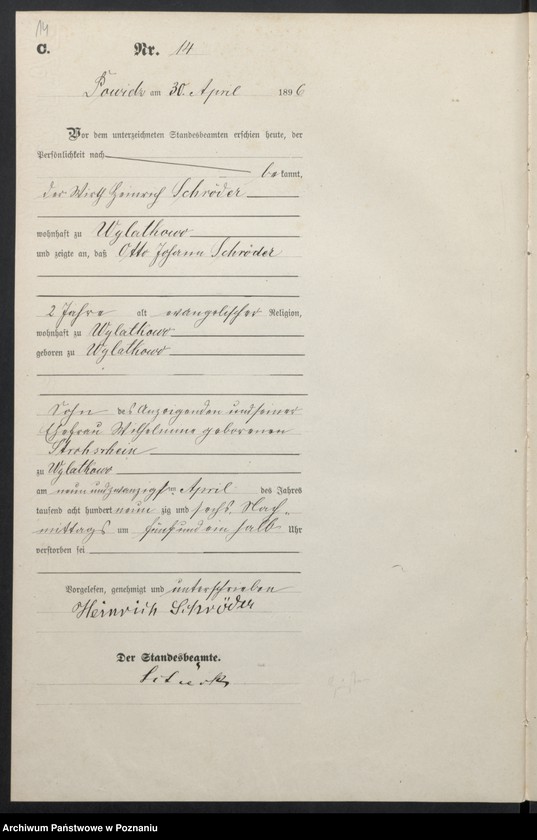 14
C. Nr. 14
Powidz am 30. April 1896
Vor dem unterzeichneten Standesbeamten erschien heute, der
Persönlichkeit nach
bekannt,
der Wirth Heinrich Schröder
wohnhaft zu Wylatkowo
und zeigte an, daß Otto Johann Schröder
2 Jahre alt evangelischer Religion,
wohnhaft zu Wylatkowo
geboren zu Wylatkowo
Sohn des Anzeigenden und seiner
Ehefrau Wilhelmine geborenen
Strohschein
zu Wylatkowo
am neun und zwanzigsten April des Jahres
tausend acht hundert neunzig und sechs Nach-
mittags um fünf und ein halb Uhr
verstorben sei
Vorgelesen, genehmigt und unterschrieben
Heinrich Schröder
Der Standesbeamte.
Archiwum Państwowe w Poznaniu